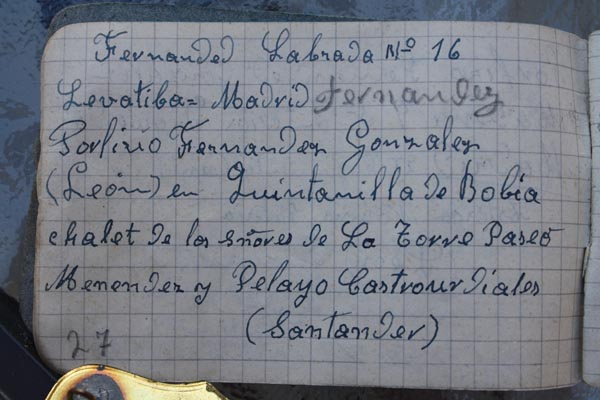 Fernanded Labrada Nº 16
Levatiba= Madrid Fernandez
Porlirio Fernandez Gonzalez
(León) en Quintanilla de Bobia
chalet de los señores de La Torre Paseo
Menendez y Pelayo Castrourdiales
(Santander)
27